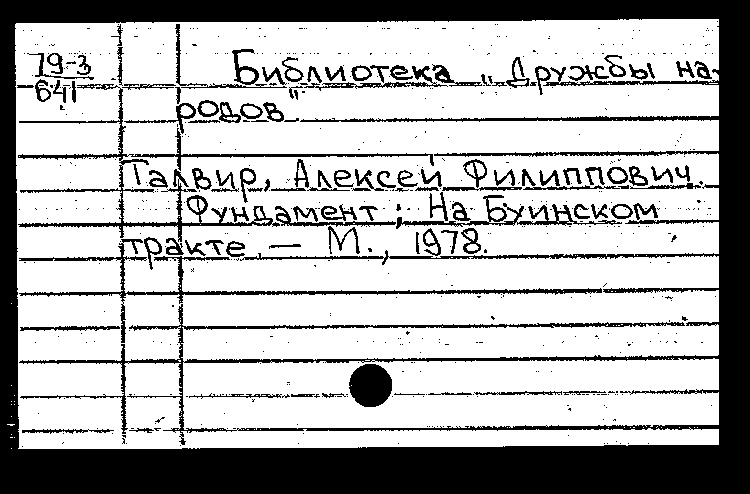 79-3
641
Библиотека „Дружбы на-
родов"
Талвир, Алексей Филиппович.
Фундамент; На Буинском
тракте. — М., 1978.